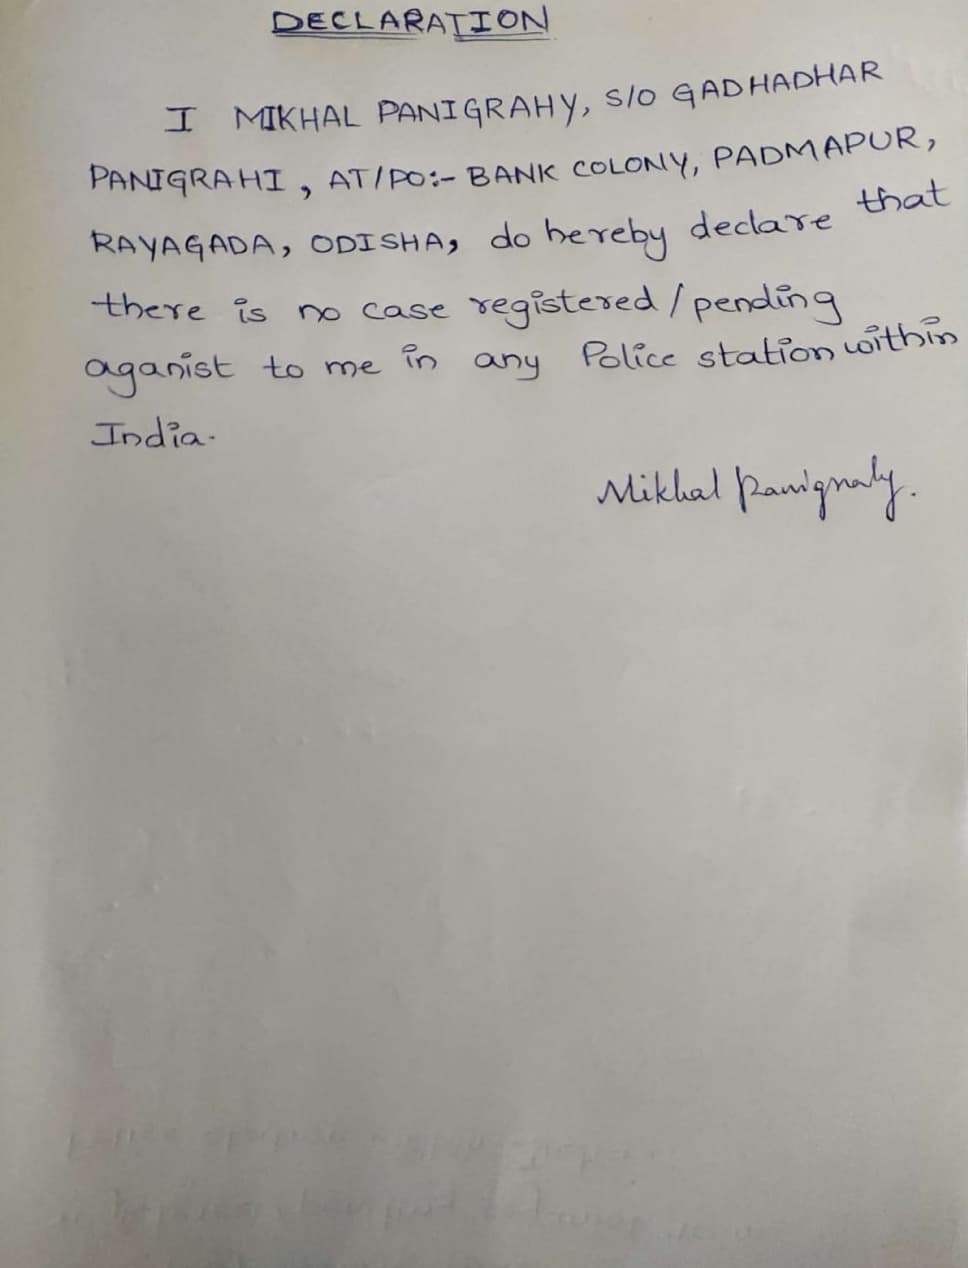 DECLARATION
I MIKHAL PANIGRAHY, S/O GADHADHAR
PANIGRAHI, AT/PO:- BANK COLONY, PADMAPUR,
RAYAGADA, ODISHA, do hereby declare that
there is no case registered/pending
aganist to me in any Police station within
India.
Mikhal Panigrahy.